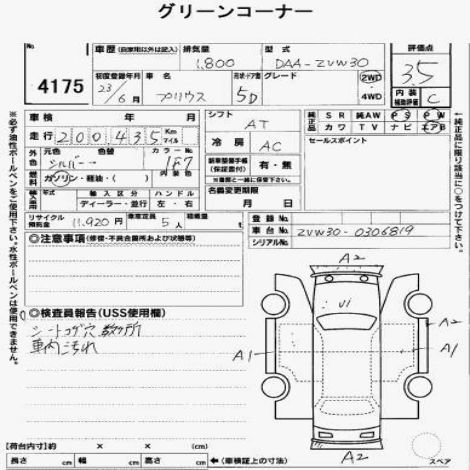 グリーンコーナー
No. 4175
車歴 (自家用以外は記入) 排気量 1,800 型式 DAA-ZVW30 評価点 3.5
初度登録年月 23/6月 車名 プリウス 形状・ドア数 5D グレード 2WD・4WD 内装補助評価 C
車検 年 月 シフト AT
純正品 SR 純AW PS PW
カワ TV ナビ エアB
走行 200,435 Km マイル
外色 元色 シルバー 色替 カラーNo. 1F7 内装色
冷房 AC
セールスポイント
燃料 ガソリン・軽油・( )
新車整備手帳(保証書付) 有・無
※書類と一緒に保管して下さい。
輸入車 年式 輸入区分 ディーラー・並行 ハンドル 左・右
名義変更期限 月 日
リサイクル預託金 11,920円 車歴定員 5人 積載量 t
登録No.
車台No. ZVW30-0306819
シリアルNo.
◎注意事項(修復・不具合箇所および状態等)
◎検査員報告(USS使用欄)
シートコゲ穴数ヶ所
車内汚れ
A2
U1
A1
A2
A1
A2
スペア
【荷台内寸】約 × ×
長さ cm 幅 cm 高さ cm ←(車検証上の寸法)
※必ず油性ボールペンをご使用下さい。水性ボールペンは使用できません。
←純正品に限り該当に○をつけて下さい。